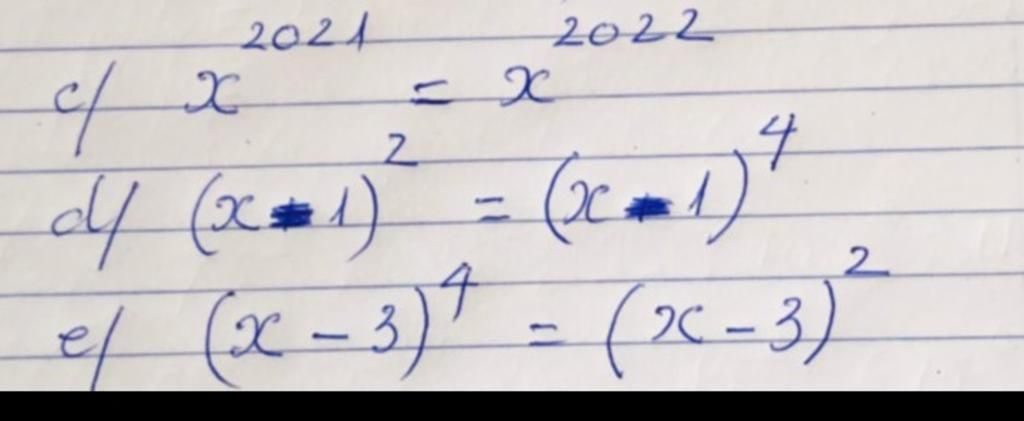 c/ x^2021 = x^2022
d/ (x - 1)^2 = (x - 1)^4
e/ (x - 3)^4 = (x - 3)^2